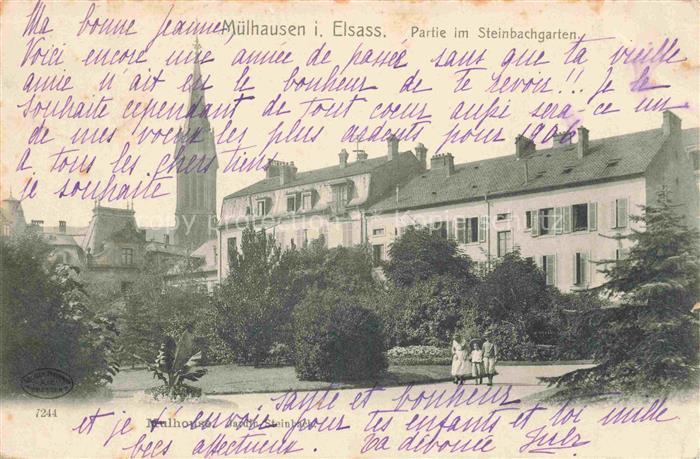 Mülhausen i. Elsass. Partie im Steinbachgarten.
Ma bonne Jeanne,
Voici encore une année de passée sans que ta vieille
amie n'ait eu le bonheur de te revoir !! Je le
souhaite cependant de tout cœur aussi sera-ce un
de mes vœux les plus ardents pour 190
à tous les chers tiens
je souhaite
santé et bonheur
et je t'envoi pour tes enfants et toi mille
bees affectueux. Ta dévouée
7244
Mulhouse Jardin Steinbach